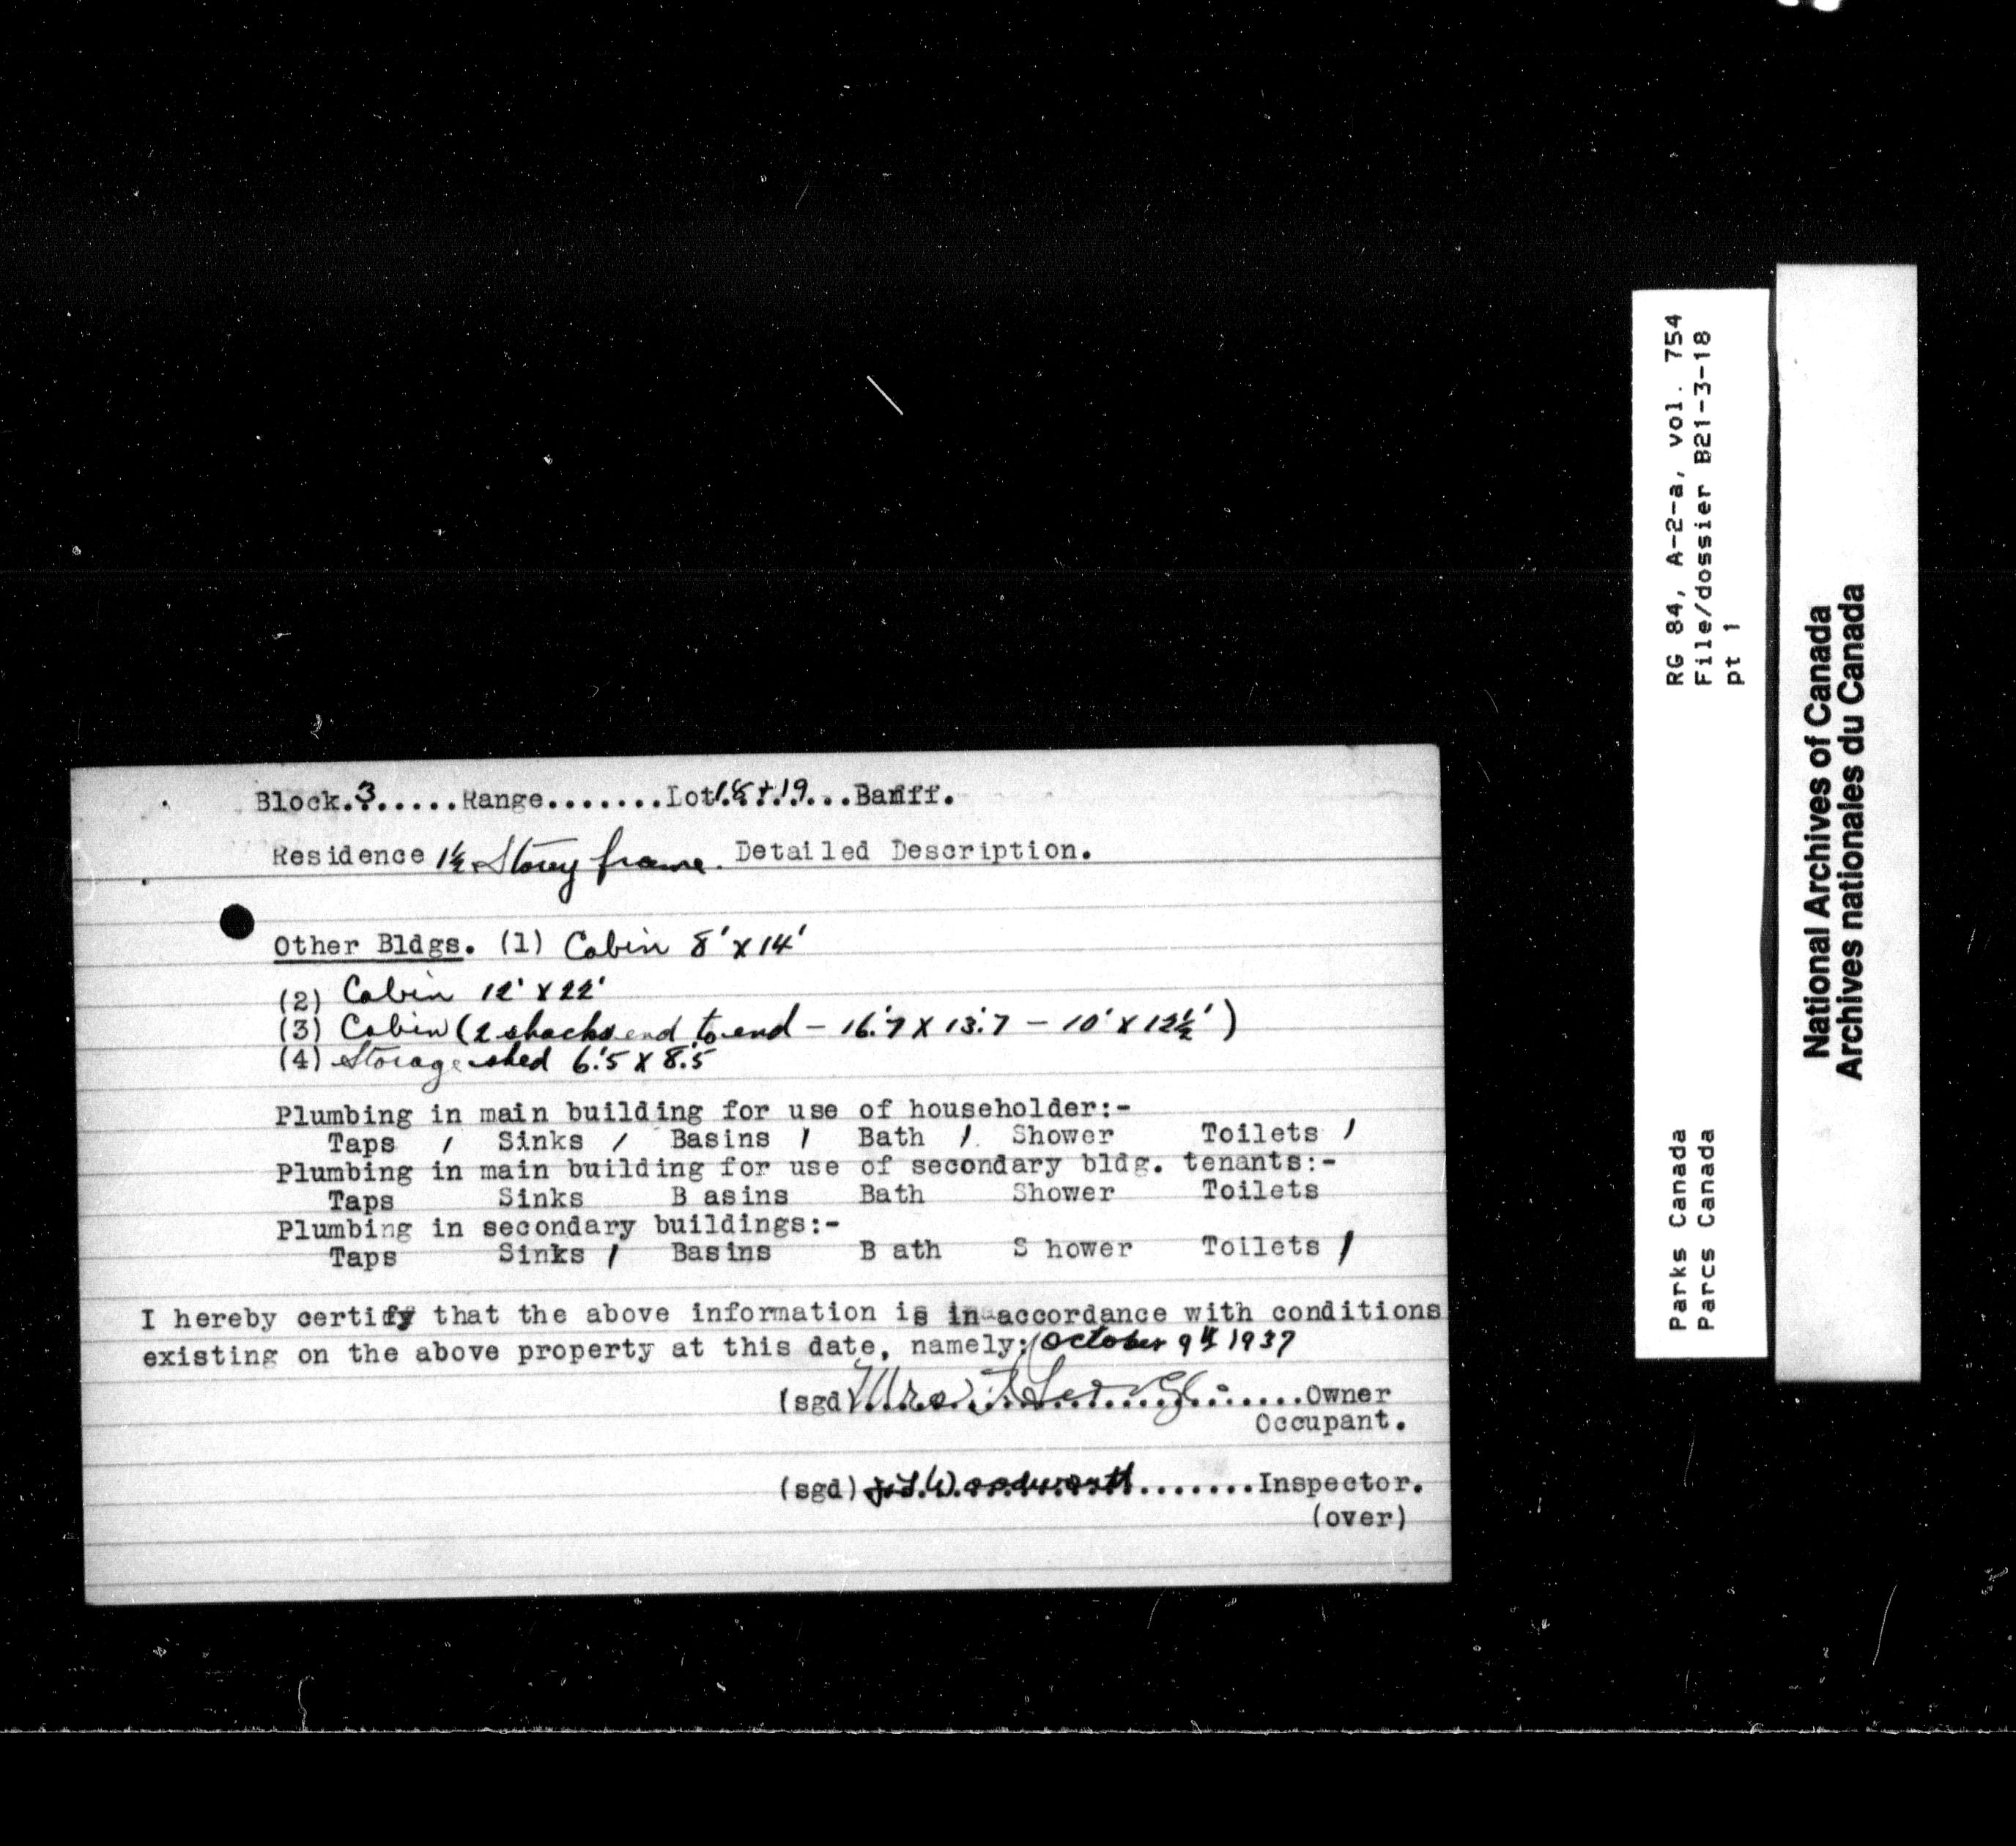 Block.3......Range.......Lot.18+19...Banff.
Residence 1½ Storey frame. Detailed Description.
Other Bldgs. (1) Cabin 8' x 14'
(2) Cabin 12' x 22'
(3) Cabin (2 shacks end to end - 16.'7 x 13.'7 - 10' x 12½')
(4) Storage shed 6.'5 x 8.'5
Plumbing in main building for use of householder:-
Taps / Sinks / Basins / Bath / Shower Toilets /
Plumbing in main building for use of secondary bldg. tenants:-
Taps Sinks B asins Bath Shower Toilets
Plumbing in secondary buildings:-
Taps Sinks / Basins B ath S hower Toilets /
I hereby certify that the above information is in accordance with conditions
existing on the above property at this date, namely; October 9th 1937
(sgd) Mrs ......Owner
Occupant.
(sgd) Woodworth.......Inspector.
(over)
RG 84, A-2-a, vol. 754
File/dossier B21-3-18
pt 1
Parks Canada
Parcs Canada
National Archives of Canada
Archives nationales du Canada